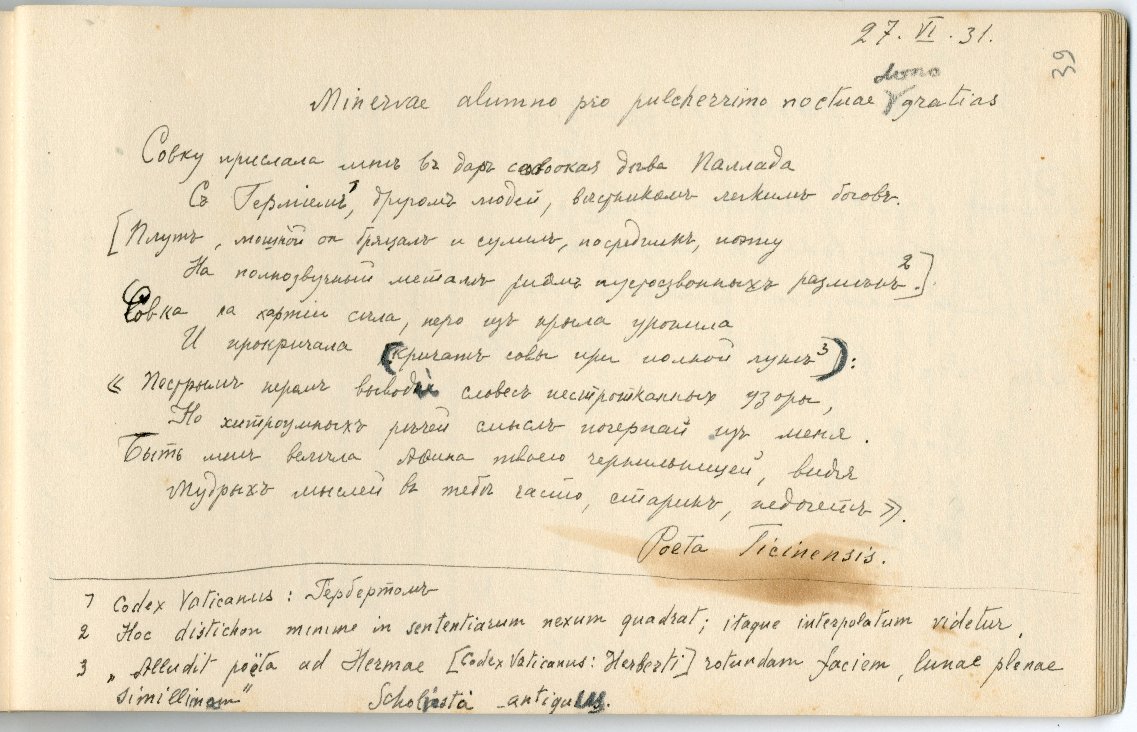 27. VI. 31.
39
dono
Minervae alumno pro pulcherrimo noctuae gratias
Совку прислала мнѣ въ даръ совоокая дѣва Паллада
Съ Герміемъ¹, другомъ людей, вѣстникомъ легкимъ боговъ.
[Плутъ, мошной он бряцалъ и сулилъ, посредникъ, поэту
На полнозвучный металлъ риѳмъ пустозвонныхъ размѣнъ².]
Совка на хартіи сѣла, перо изъ крыла уронила
И прокричала (кричатъ совы при полной лунѣ³):
« Пестрымъ перомъ выводи словесъ пестротканныхъ узоры,
Но хитроумныхъ рѣчей смыслъ почерпай изъ меня.
Быть мнѣ велѣла Аѳина твоею чернильницей, видя
Мудрыхъ мыслей въ тебѣ часто, старикъ, недочетъ ».
Poeta Ticinensis.
1 Codex Vaticanus: Гербертомъ
2 Hoc distichon minime in sententiarum nexum quadrat; itaque interpolatum videtur.
3 „Alludit poëta ad Hermae [Codex Vaticanus: Herberti] rotundam faciem, lunae plenae
simillimam" Scholiasta antiquus.